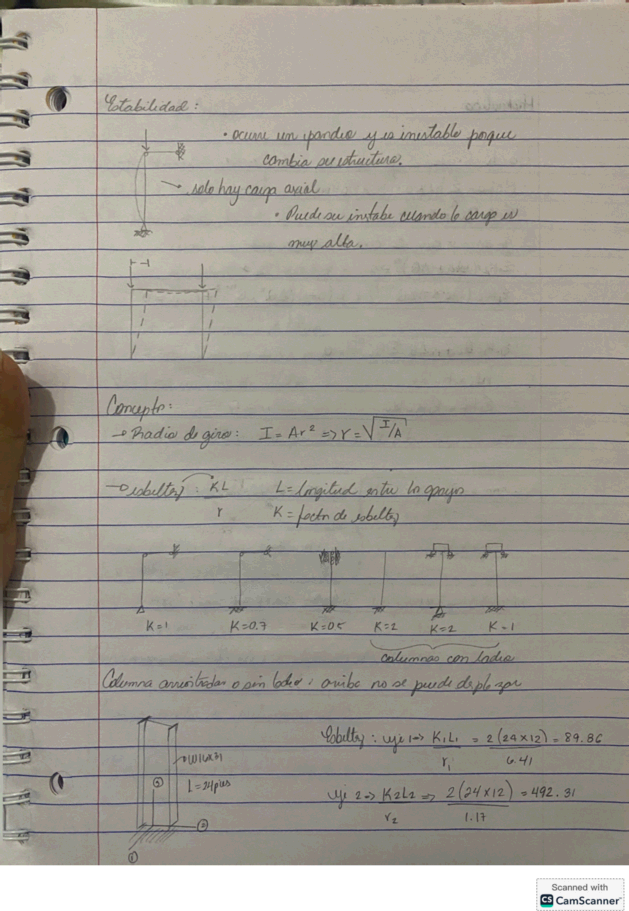 Estabilidad:
• ocurre un pandeo y es inestable porque
cambia su estructura.
→ solo hay carga axial
• Puede ser instabe cuando la carga es
muy alta.
Concepto:
→ Radio de giro: I = Ar² => r = √I/A
→ esbeltez: KL/r L = longitud entre los apoyos
K = factor de esbeltez
K=1 K=0.7 K=0.5 K=2 K=2 K=1
columnas con ladeo
Columna arriostradas o sin ladeo: arriba no se puede desplazar
Esbeltez: eje 1 => K₁L₁/r₁ = 2(24×12)/6.41 = 89.86
W16x31
L = 24 pies
eje 2 => K2L2/r₂ => 2(24×12)/1.17 = 492.31
③
②
①
Scanned with
CS CamScanner